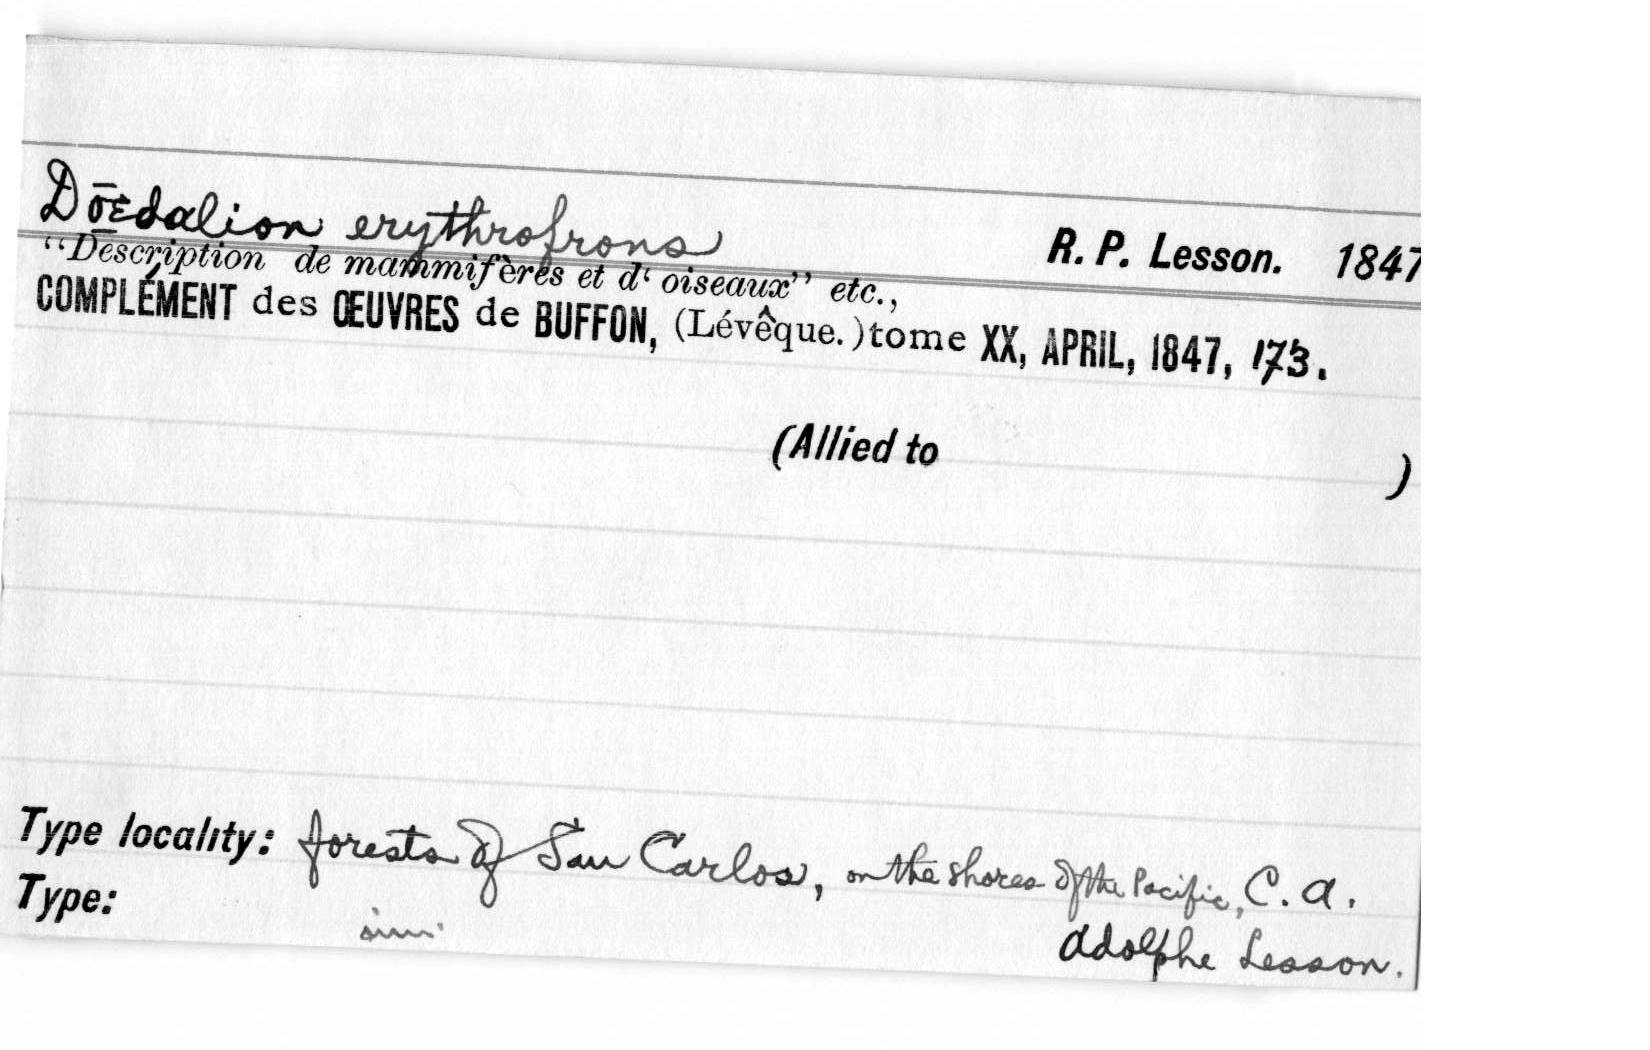 Dœdalion erythrofrons
R. P. Lesson. 1847
“Description de mammifères et d‘ oiseaux” etc.,
COMPLÉMENT des ŒUVRES de BUFFON, (Lévêque.) tome XX, APRIL, 1847, 173.
(Allied to )
Type locality: forests of San Carlos, on the shores of the Pacific, C. A.
Type:
Adolphe Lesson.